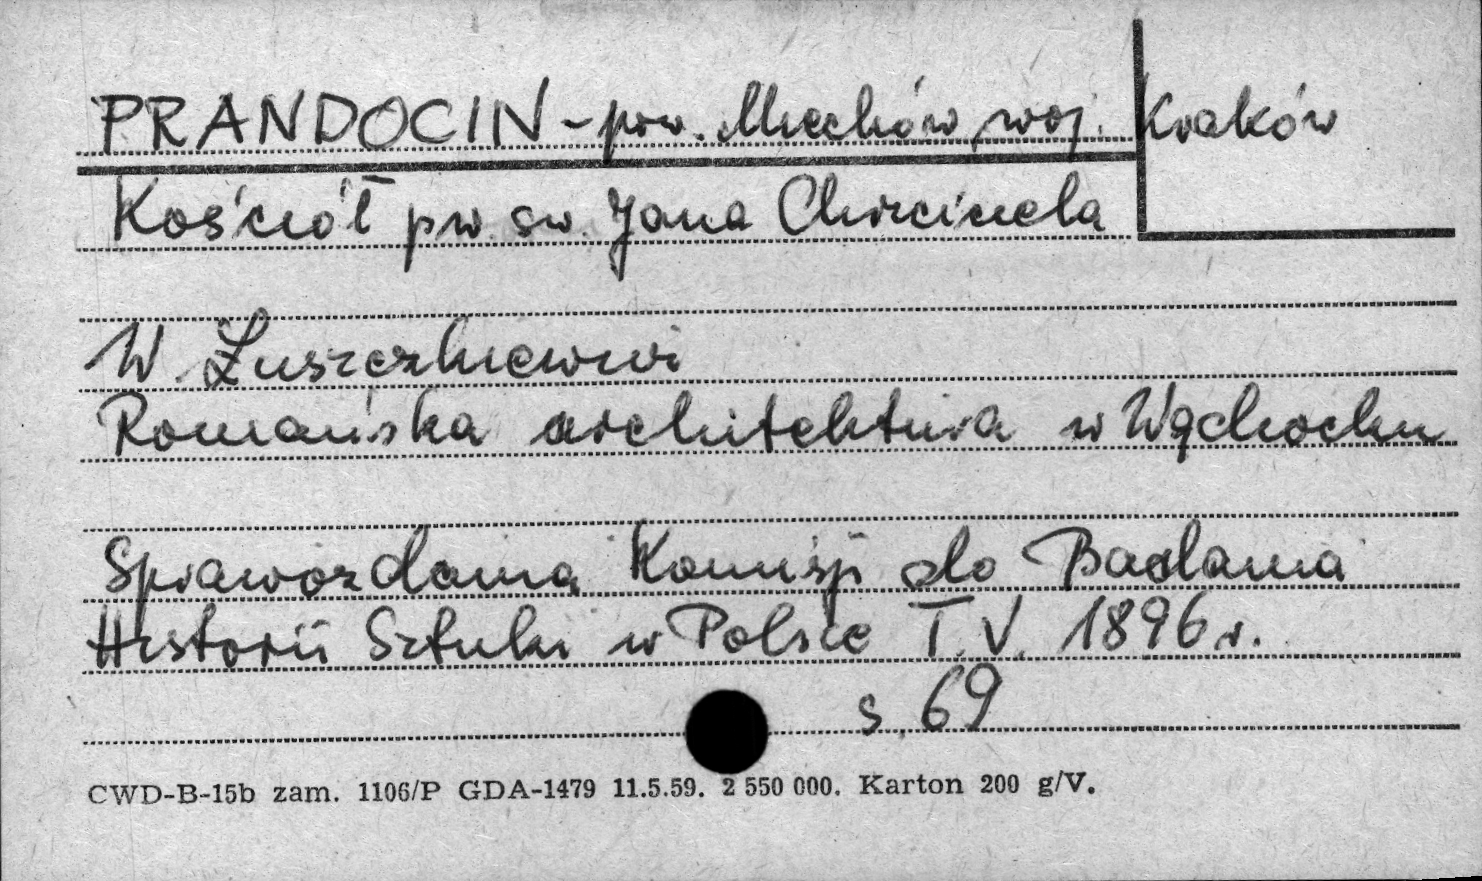 PRANDOCIN - pow. Miechów woj. Kraków
Kościół pw. św. Jana Chrzciciela
W. Łuszczkiewicz
Romańska architektura w Wąchocku
Sprawozdania Komisji do Badania
Historii Sztuki w Polsce T. V. 1896 r.
s. 69
CWD-B-15b zam. 1106/P GDA-1479 11.5.59. 2 550 000. Karton 200 g/V.